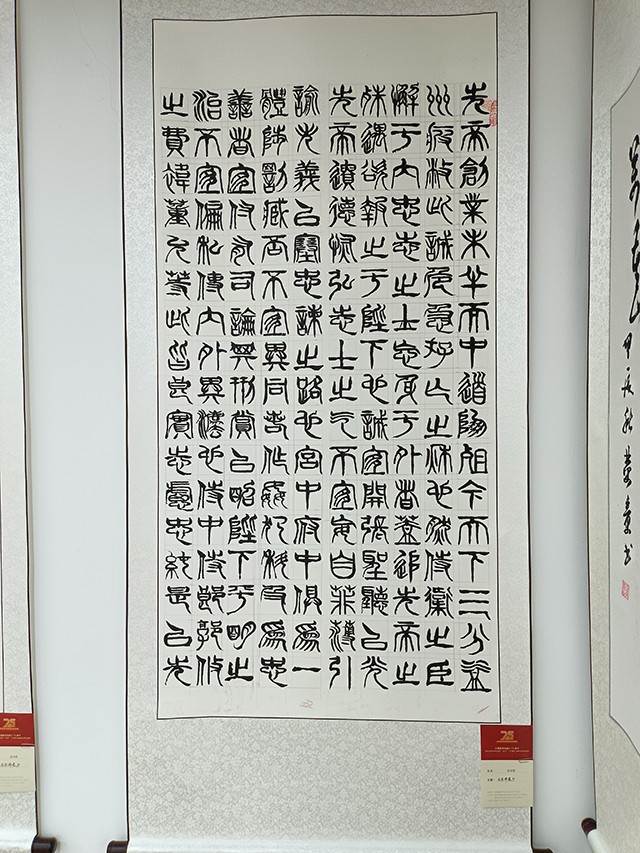 先帝創業未半而中道崩殂今天下三分益
州疲敝此誠危急存亡之秋也然侍衛之臣
懈于內忠志之士忘身于外者蓋追先帝之
殊遇欲報之于陛下也誠宜開張聖聽以光
先帝遺德恢弘志士之氣不宜妄自菲薄引
諭失義以塞忠諫之路也宮中府中俱為一
體陟罰臧否不宜異同若作姦犯科及為忠
善者宜付有司論其刑賞以昭陛下平明之
治不宜偏私使內外異法也侍中侍郎郭攸
之費禕董允等此皆良實志慮忠純是以先
甲辰秋